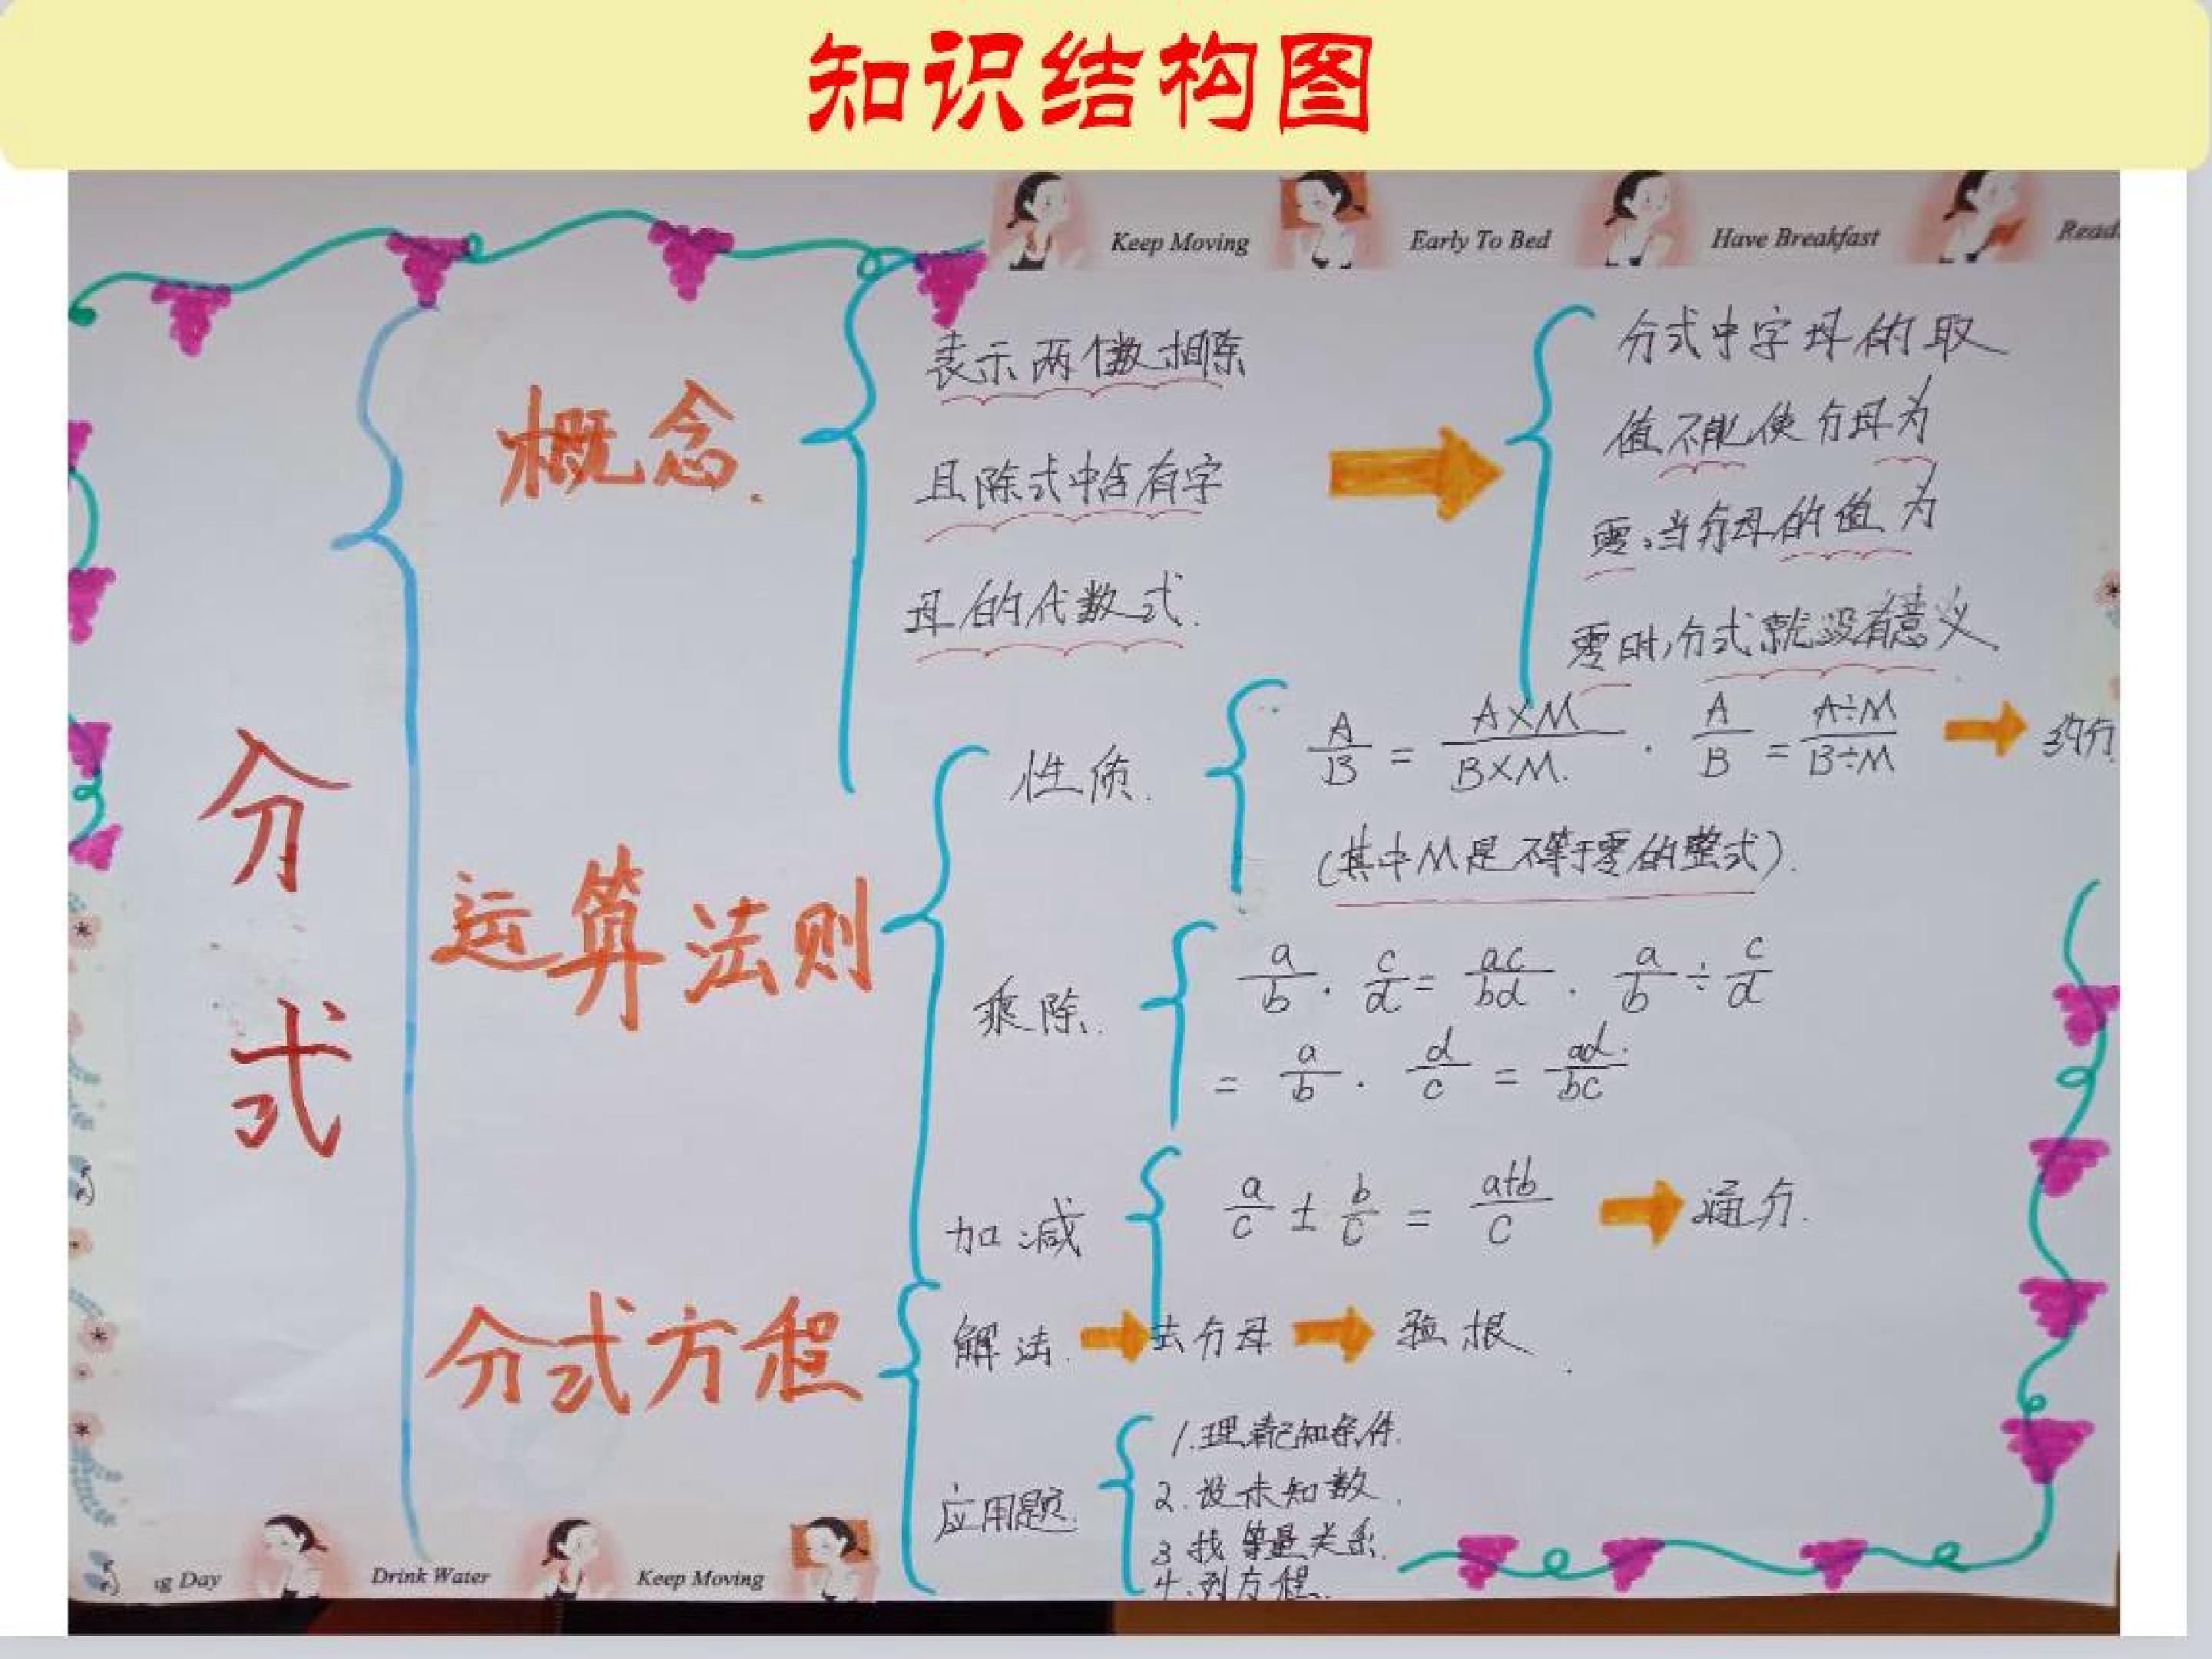 知识结构图
Keep Moving
Early To Bed
Have Breakfast
Read
分式
概念.
表示两个数相除
且除式中含有字
母的代数式.
分式中字母的取
值不能使分母为
零,当分母的值为
零时,分式就没有意义.
运算法则
性质.
A/B = A×M/B×M. A/B = A÷M/B÷M
约分
(其中M是不等于零的整式).
乘除.
a/b · c/d = ac/bd . a/b ÷ c/d
= a/b · d/c = ad/bc
加减
a/c ± b/c = a±b/c
通分.
分式方程
解法.
去分母
验根
应用题.
1.理清已知条件.
2.设未知数.
3 找等量关系.
4.列方程.
g Day
Drink Water
Keep Moving